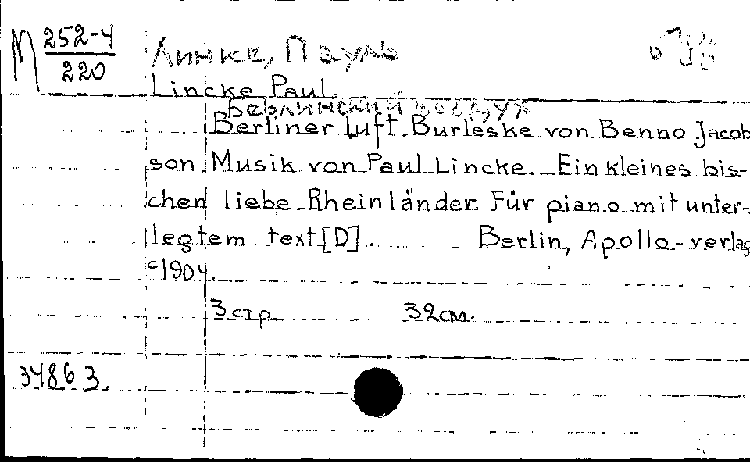 М 252-4
220
Линке, Пауль
Lincke Paul.
Берлинский воздух
Berliner Luft. Burleske von Benno Jacob-
son. Musik von Paul Lincke. Ein kleines bis-
chen liebe Rheinländer. Für piano mit unter-
legtem text [D]. Berlin, Apollo-verlag
c1904.
3 стр 32 см.
34863.